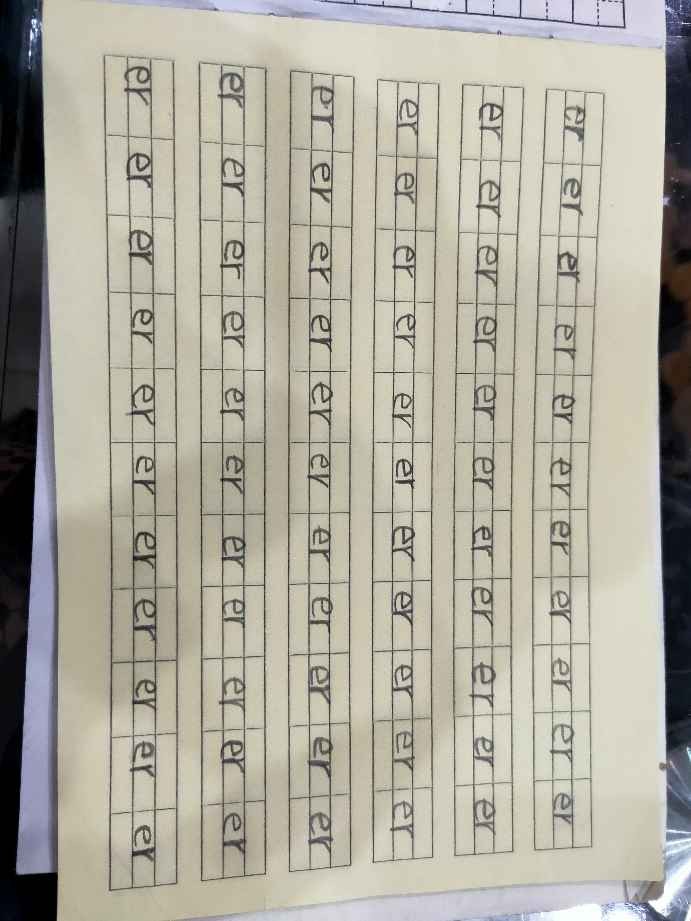 er er er er er er er er er er er
er er er er er er er er er er er
er er er er er er er er er er er
er er er er er er er er er er er
er er er er er er er er er er er
er er er er er er er er er er er